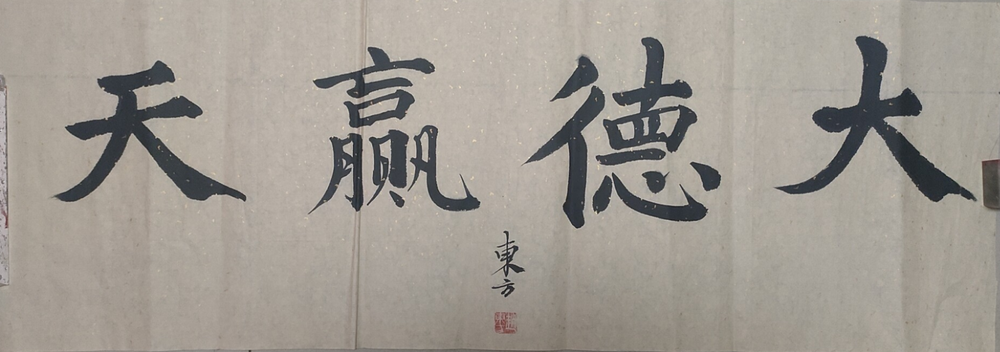 大德赢天
東方